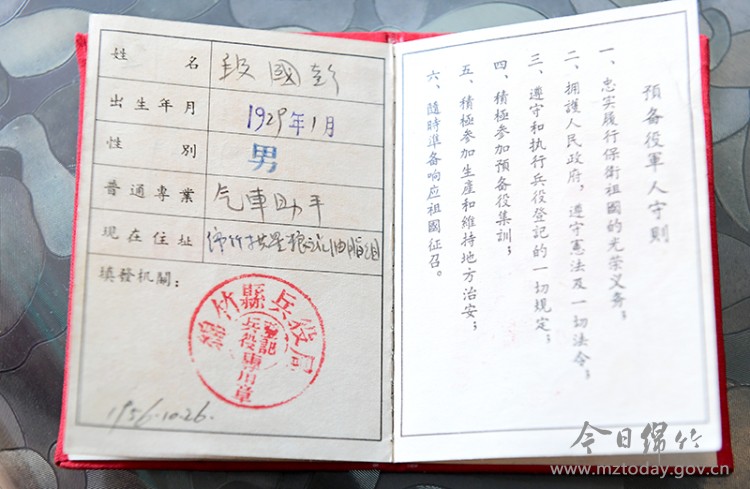 姓名 段國彭
出生年月 1929年1月
性別 男
普通專業 汽車助手
現在住址 綿竹
填發机關：
綿竹縣兵役局
兵役登記專用章
1956.10.26.
預备役軍人守則
一、忠实履行保衛祖國的光荣义务；
二、拥護人民政府，遵守憲法及一切法令；
三、遵守和执行兵役登記的一切規定；
四、積極参加預备役集訓；
五、積極参加生產和維持地方治安；
六、隨時準备响应祖國征召。
今日绵竹
www.mztoday.gov.cn